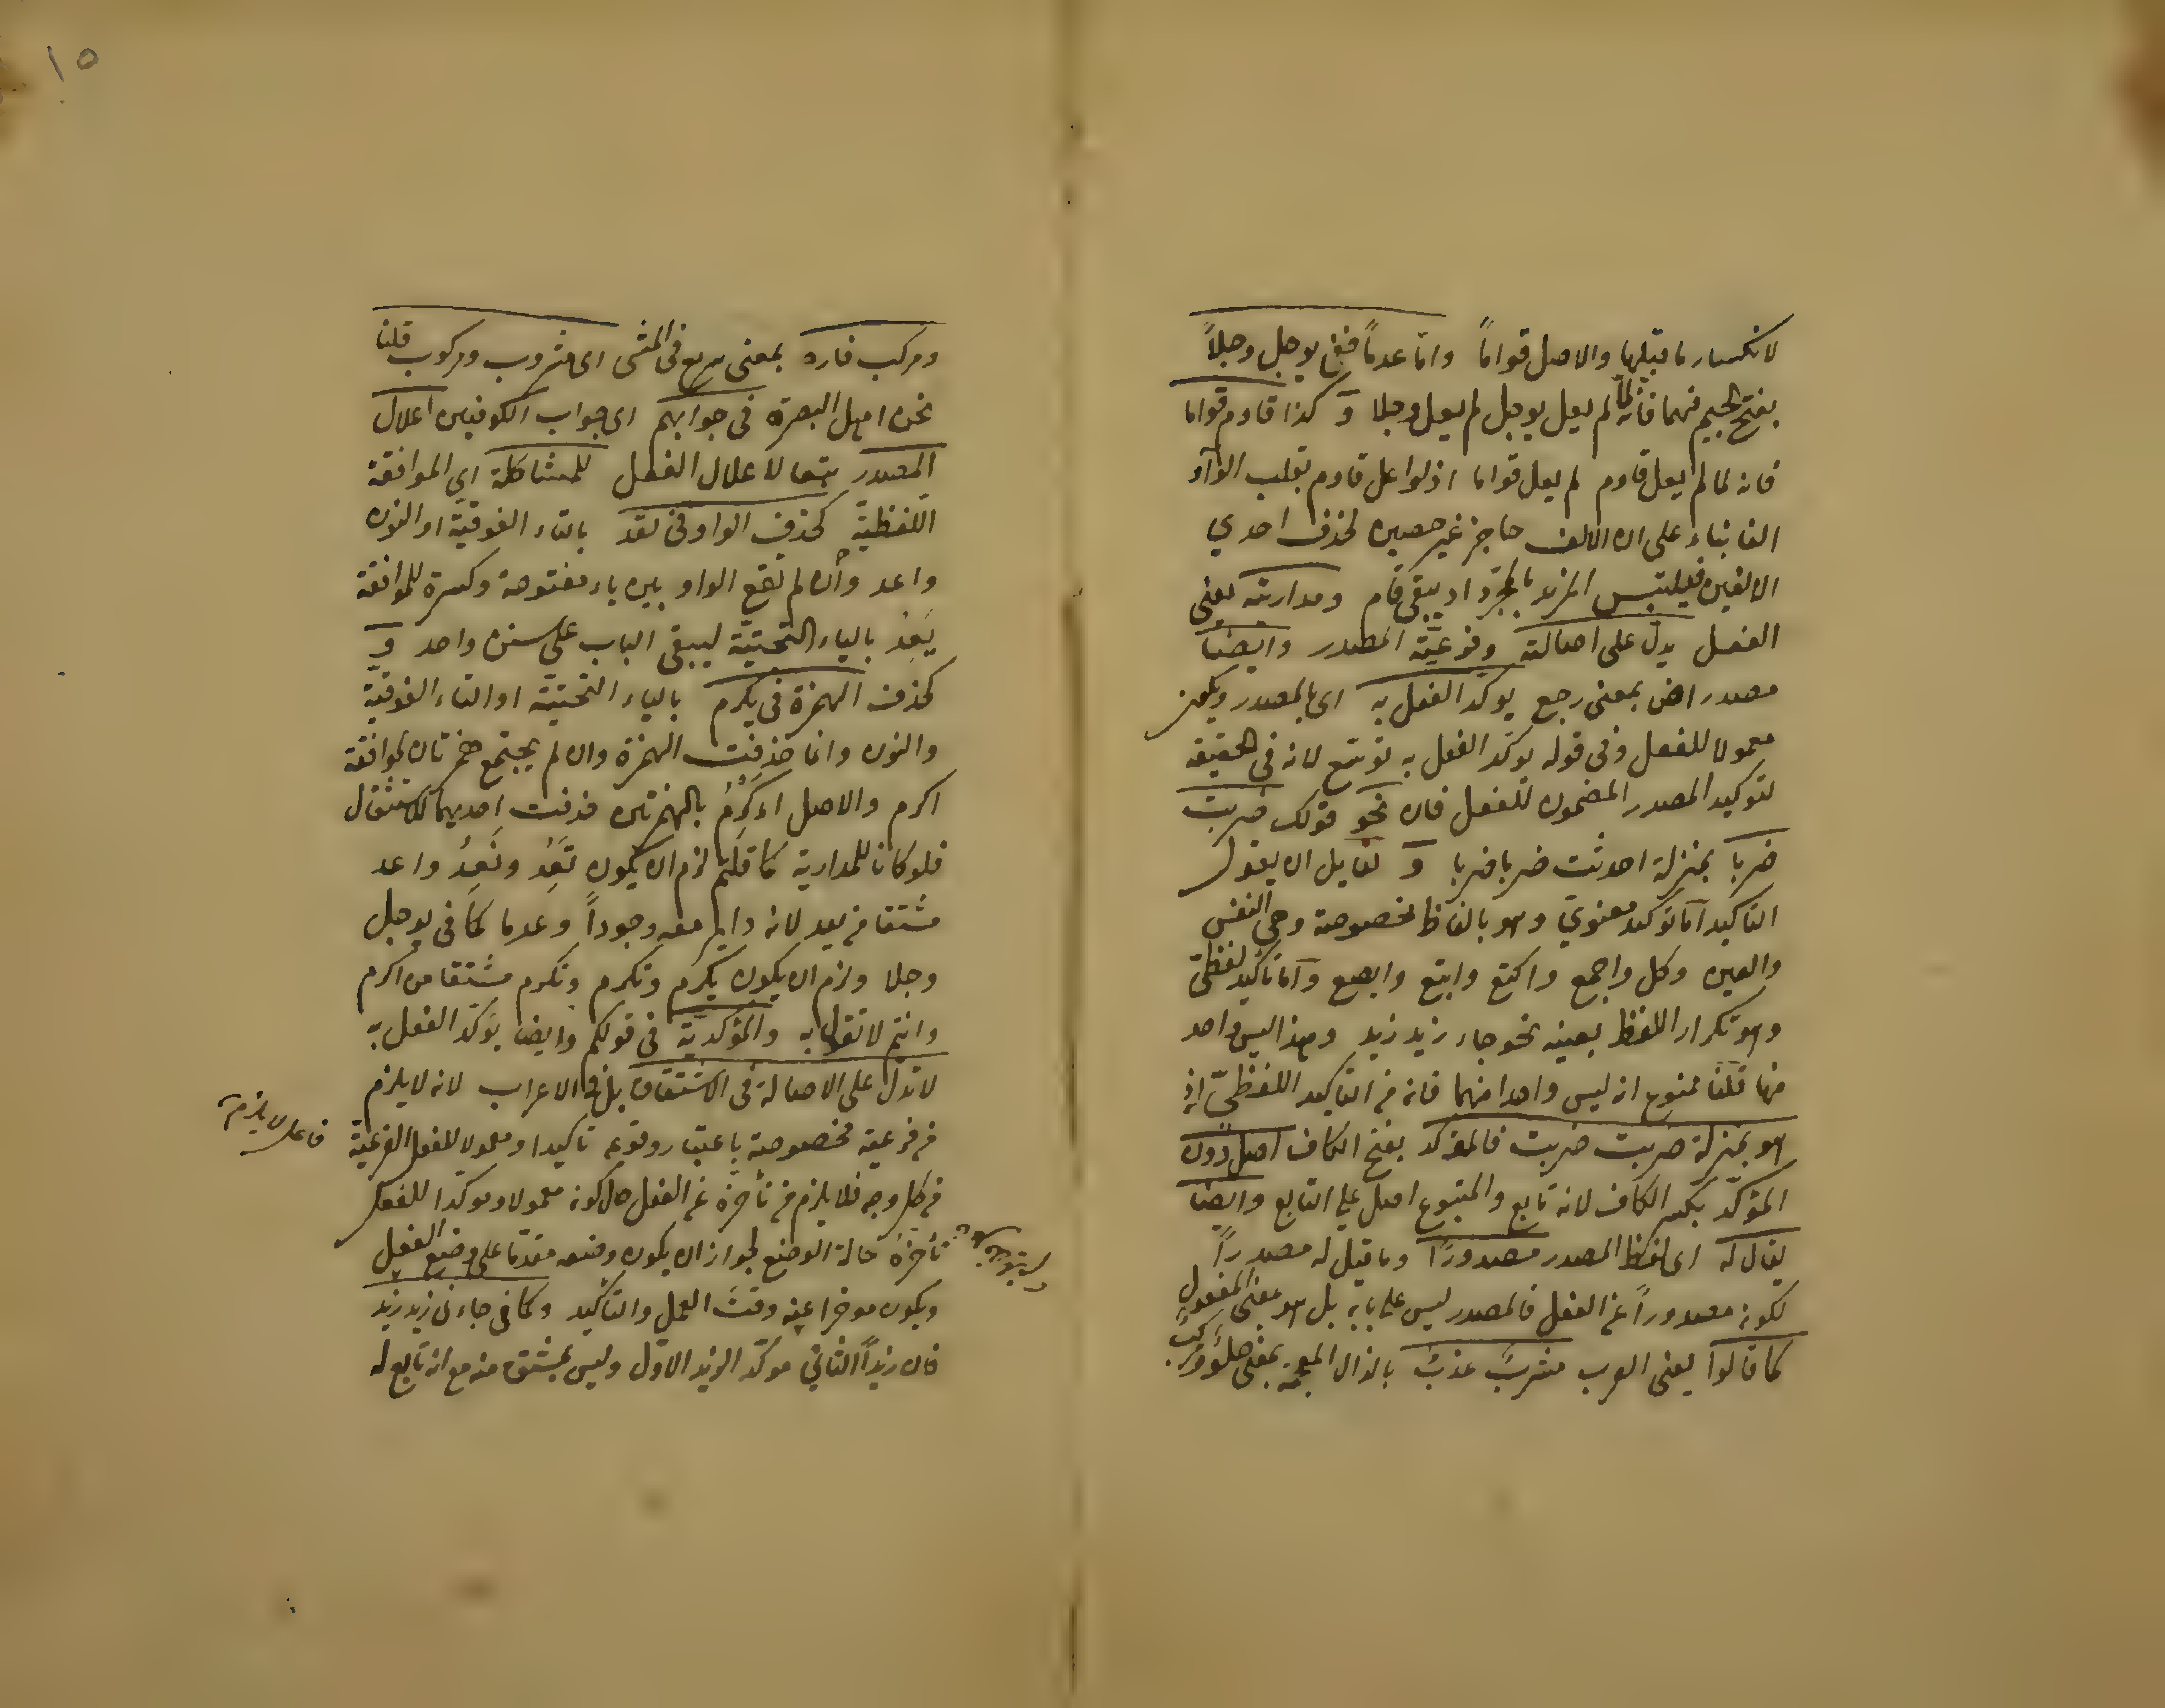 لانكسار ما قبلها والاصل قواماً واما عدماً ففي يوجل وجلاً
بفتح الجيم فيهما فانه لما لم يعل يوجل لم يعل وجلا و كذا قاوم قواما
فانه لما لم يعل قاوم لم يعل قواما اذ لو اعل قاوم بقلب الواو
الفا بناء على ان الالف حاجز غير حصين لحذف احدي
الالفين فيلتبس المزيد بالمجرد اذ يبقى قام ومداريته يعني
الفعل يدل على اصالته وفرعية المصدر وايضا
مصدر اض بمعنى رجع يوكد الفعل به اى بالمصدر ويكون
معمولا للفعل وفى قوله يوكد الفعل به توسع لانه في الحقيقة
لتوكيد المصدر المضمون للفعل فان نحو قولك ضربت
ضربا بمنزلة احدثت ضربا ضربا و لقايل ان يقول
التاكيد اما توكيد معنوي وهو بالفاظ مخصوصة وهى النفس
والعين وكل واجمع واكتع وابتع وابصع واما تاكيد لفظى
وهو تكرار اللفظ بعينه نحو جاء زيد زيد وهذا ليس واحد
منها قلنا ممنوع انه ليس واحدا منهما فانه من التاكيد اللفظي اذ
هو بمنزلة ضربت ضربت فالمؤكد بفتح الكاف اصل دون
المؤكد بكسر الكاف لانه تابع والمتبوع اصل علي التابع وايضا
يقال له اى للفظ المصدر مصدورا وما قيل له مصدراً
لكونه مصدوراً عن الفعل فالمصدر ليس على بابه بل هو بمعنى المفعول
كما قالوا يعنى العرب مشرب عذب بالذال المعجمة بمعنى حلو ومركب
١٥
ومركب فاره بمعنى سريع فى المشى اى مشروب ومركوب قلنا
نحن اهل البصرة فى جوابهم اى جواب الكوفيين اعلال
المصدر تبعا لاعلال الفعل للمشاكلة اى الموافقة
اللفظية كحذف الواو فى تعد بالتاء الفوقية او النون
واعد وان لم تقع الواو بين ياء مفتوحة وكسرة للموافقة
يَعِدُ بالياء التحتية ليبقى الباب على سنن واحد و
كحذف الهمزة فى يكرم بالياء التحتية او التاء الفوقية
والنون وانما حذفت الهمزة وان لم يجتمع همزتان لموافقة
اكرم والاصل اءكرم بالهمزتين فحذفت احديهما للاستثقال
فلو كانا للمدارية كما قلتم لزم ان يكون تَعِدُ ونَعِدُ واعد
مشتقا من يعد لانه داير معه وجوداً وعدما كما فى يوجل
وجلا ولزم ان يكون يكرم وتكرم ونكرم مشتقا من اكرم
وانتم لا تقولون به والمؤكدية فى قولكم وايضا يؤكد الفعل به
لا تدل على الاصالة فى الاشتقاق بل فى الاعراب لانه لا يلزم
من فرعية مخصوصة باعتبار وقوعه تاكيدا ومعمولا للفعل الفرعية
من كل وجه فلا يلزم من تأخره عن الفعل حال كونه معمولا وموكدا للفعل
تأخره حالة الوضع لجواز ان يكون وضعه مقدما على وضع الفعل
ويكون موخرا عنه وقت العمل والتاكيد وكما فى جاءنى زيد زيد
فان زيداً الثاني موكد الزيد الاول وليس بمشتق منه مع انه تابع له